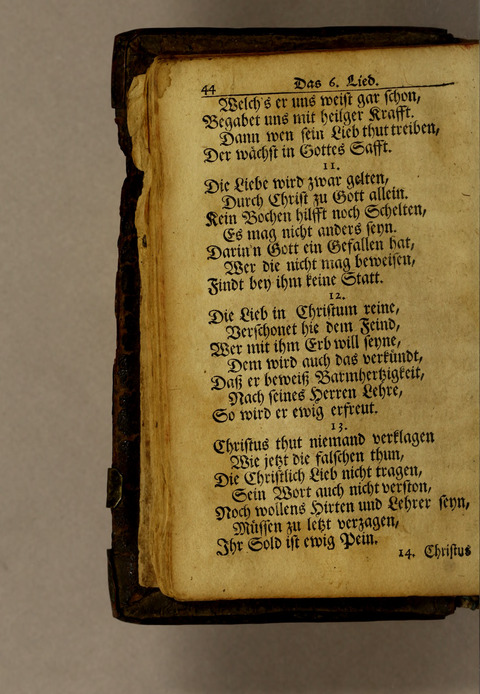 44 Das 6. Lied.
Welch's er uns weist gar schon,
Begabet uns mit heilger Krafft.
Dann wen sein Lieb thut treiben,
Der wächst in Gottes Safft.
11.
Die Liebe wird zwar gelten,
Durch Christ zu Gott allein.
Kein Bochen hilfft noch Schelten,
Es mag nicht anders seyn.
Darin'n Gott ein Gefallen hat,
Wer die nicht mag beweisen,
Findt bey ihm keine Statt.
12.
Die Lieb in Christum reine,
Verschonet hie dem Feind,
Wer mit ihm Erb will seyne,
Dem wird auch das verkündt,
Daß er beweiß Barmhertzigkeit,
Nach seines Herren Lehre,
So wird er ewig erfreut.
13.
Christus thut niemand verklagen
Wie jetzt die falschen thun,
Die Christlich Lieb nicht tragen,
Sein Wort auch nicht verston,
Noch wollens Hirten und Lehrer seyn,
Müssen zu letzt verzagen,
Ihr Sold ist ewig Pein.
14. Christus